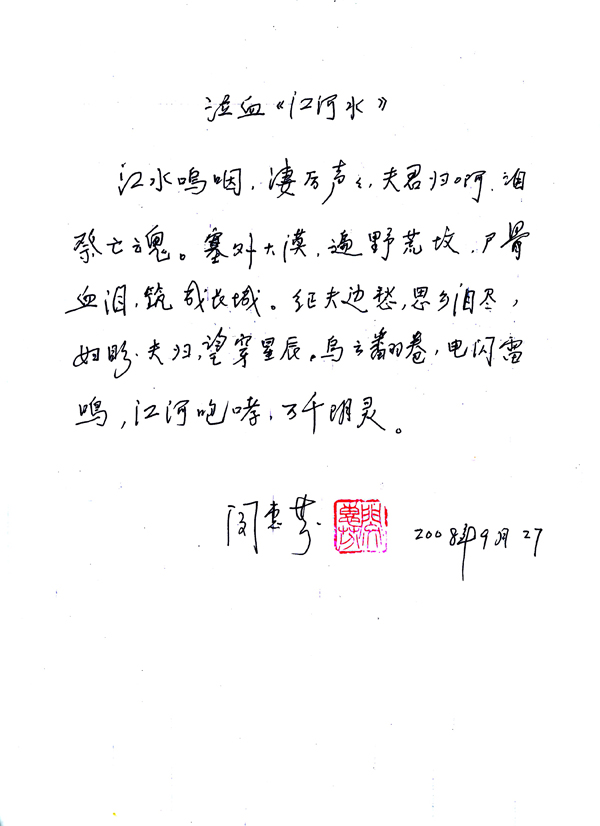 泣血《江河水》
江水呜咽，凄厉声々，夫君归啊，泪
祭亡魂。塞外大漠，遍野荒坟，尸骨
血泪，筑成长城。征夫边愁，思乡泪尽，
妇盼夫归，望穿星辰。乌云翻卷，电闪雷
鸣，江河咆哮，万千明灵。
闵惠芬
閔惠芬
2008年9月27